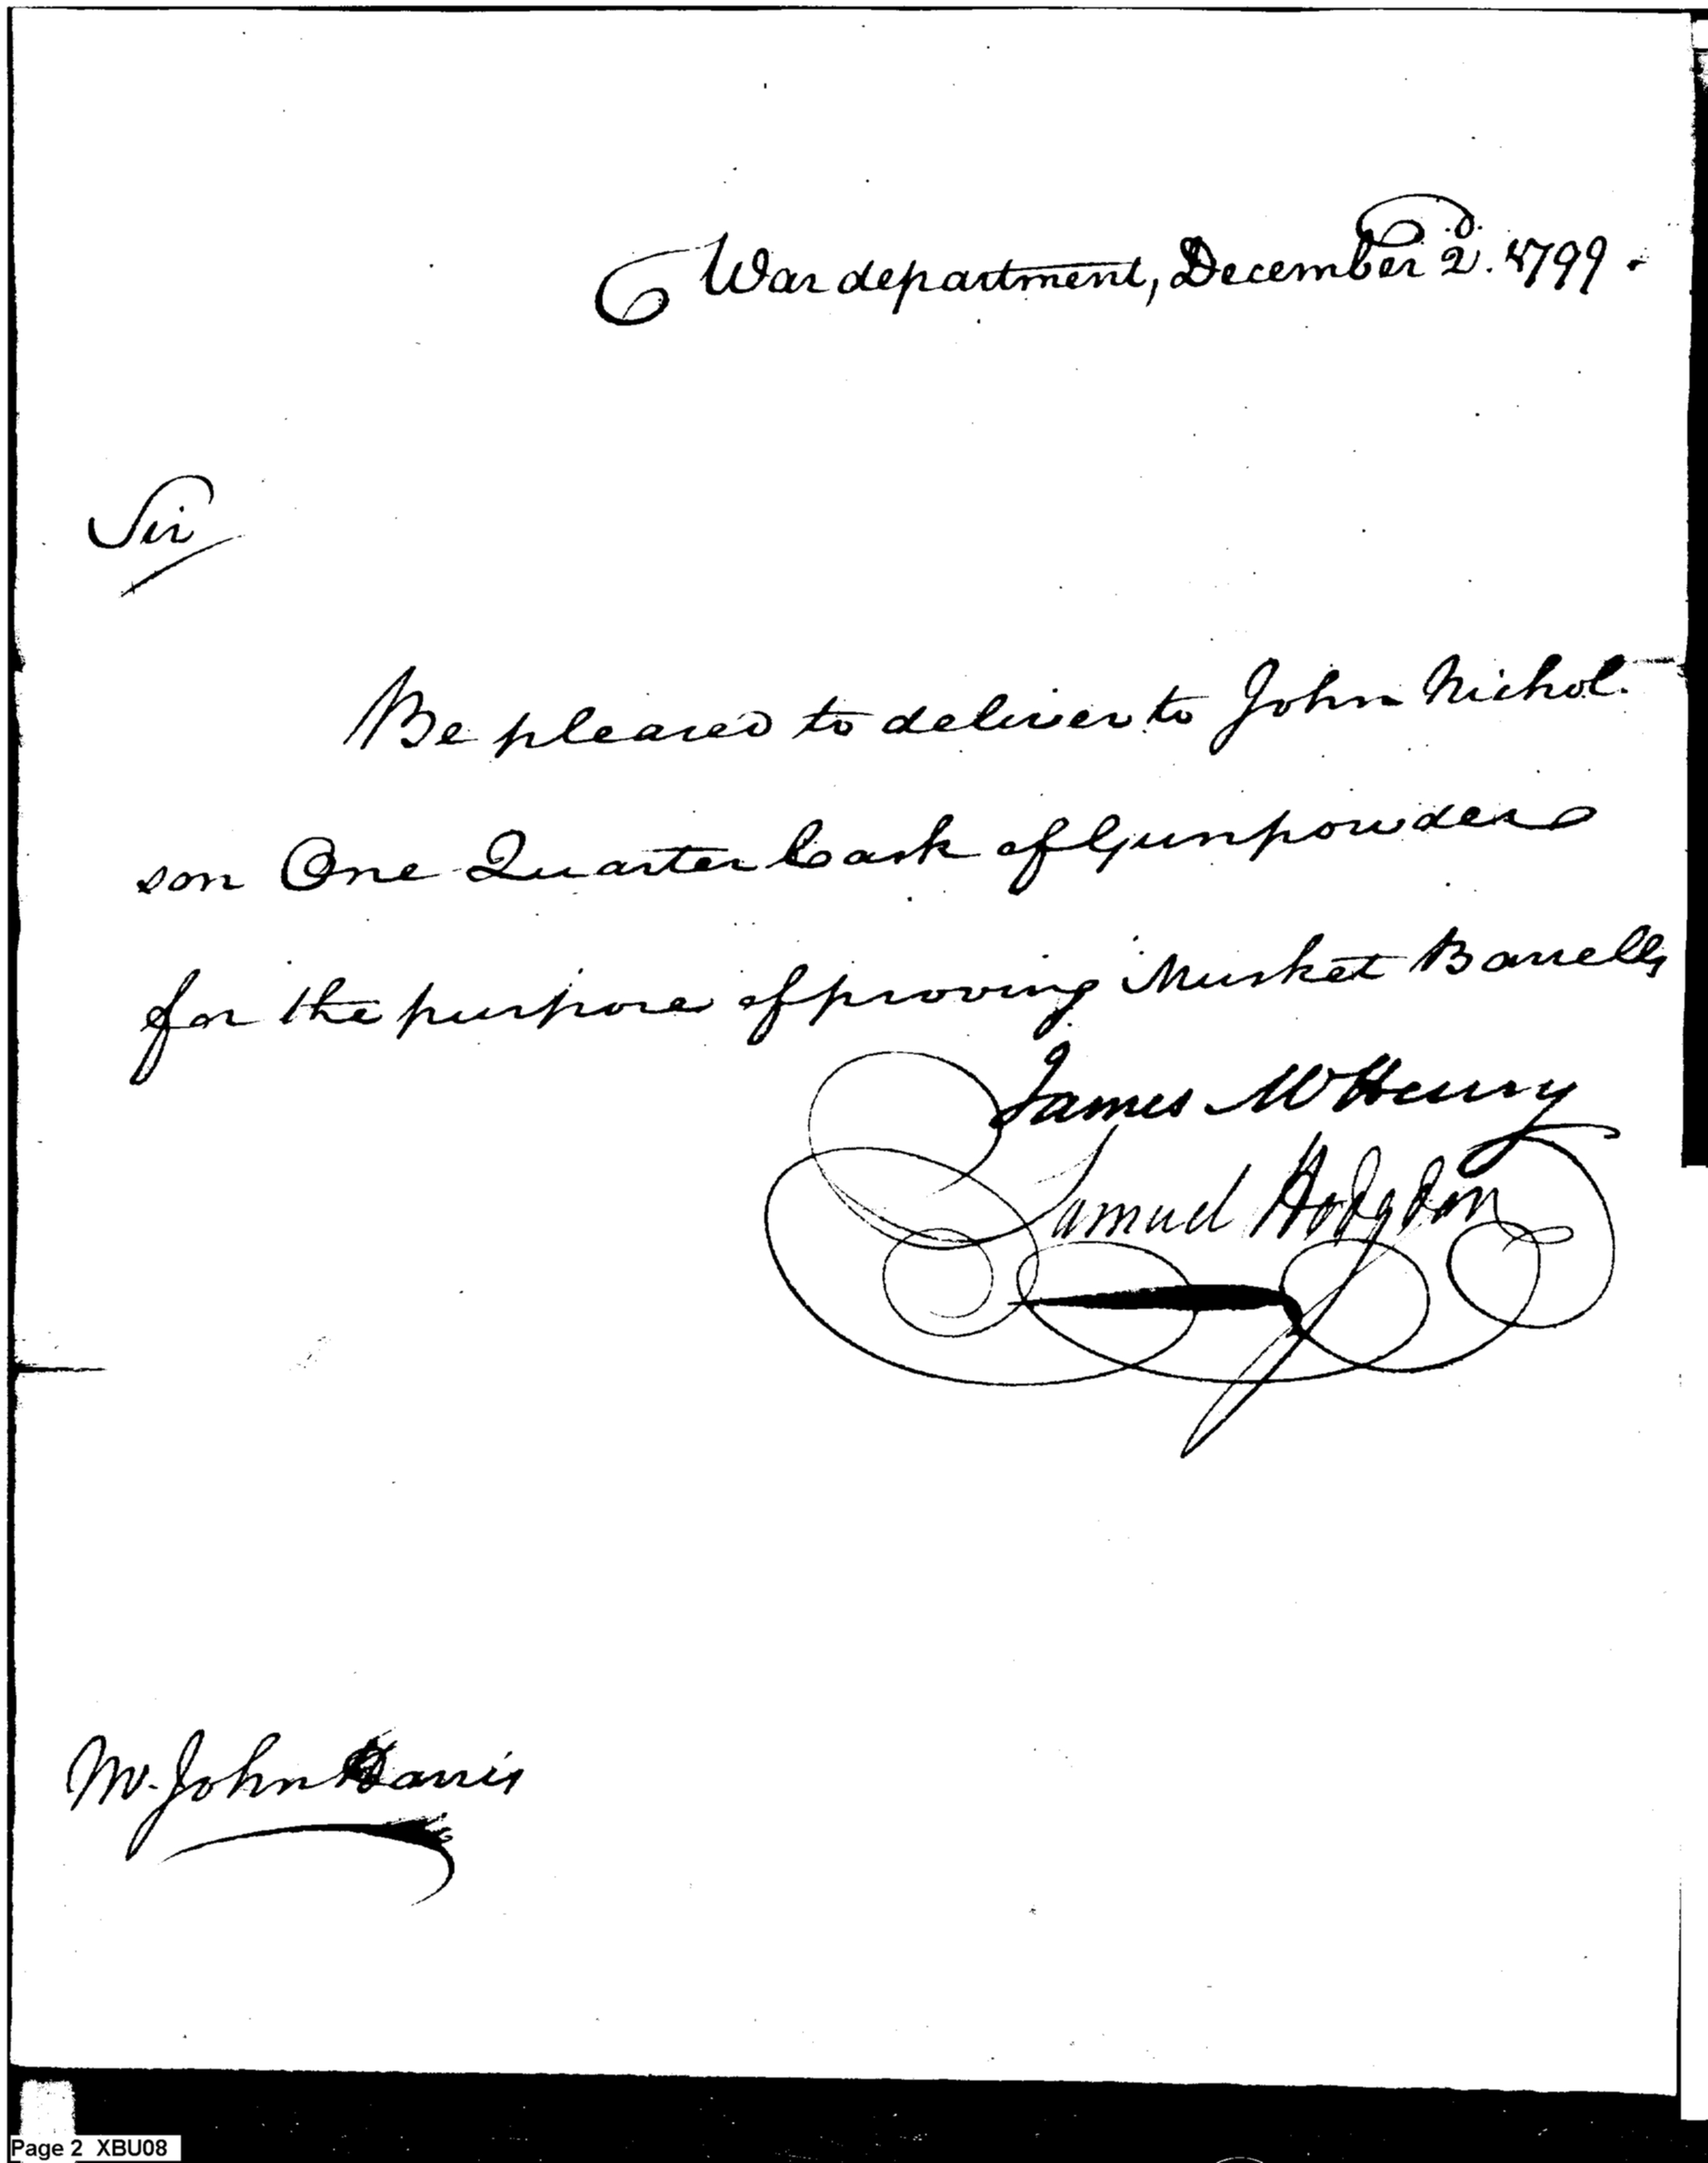 War department, December 2d. 1799.
Sir
Be pleased to deliver to John Nichol
son One Quarter Cask of Gunpowder
for the purpose of proving Musket Barrells
James McHenry
Samuel Hodgdon
Mr. John Harris
Page 2 XBU08